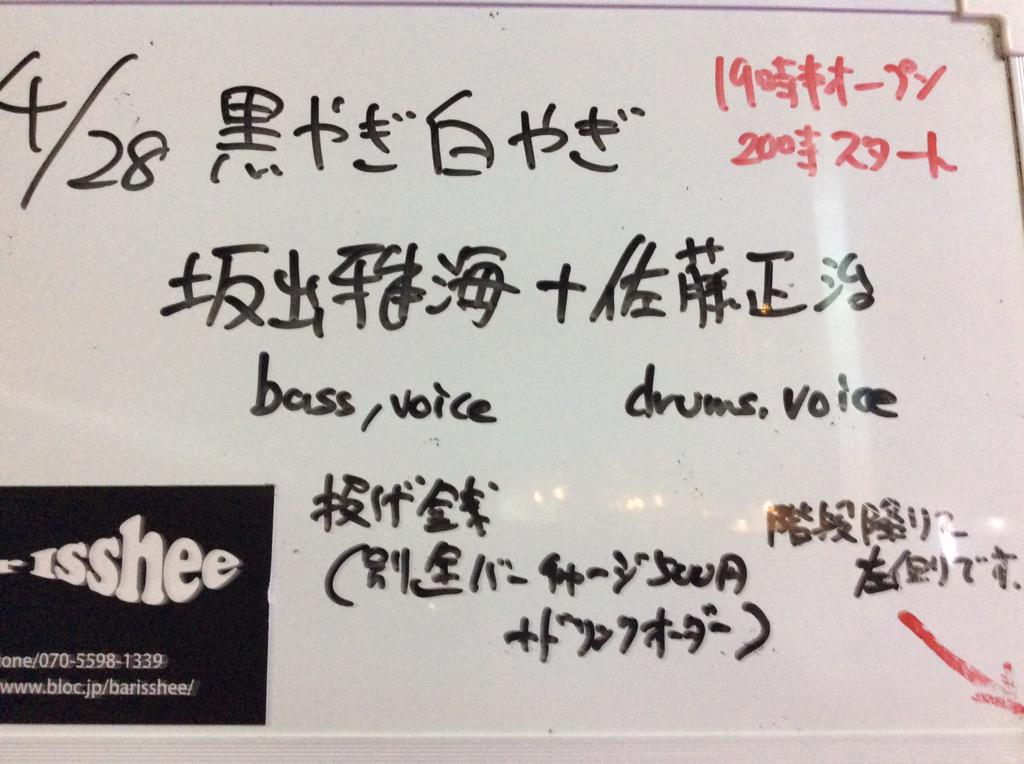 4/28 黒やぎ白やぎ
19時半オープン
20時スタート
坂出雅海+佐藤正治
bass, voice
drums. voice
投げ銭
(別途バーチャージ500円
+ドリンクオーダー)
階段降りて
左側です.
isshee
one/070-5598-1339
www.bloc.jp/barisshee/